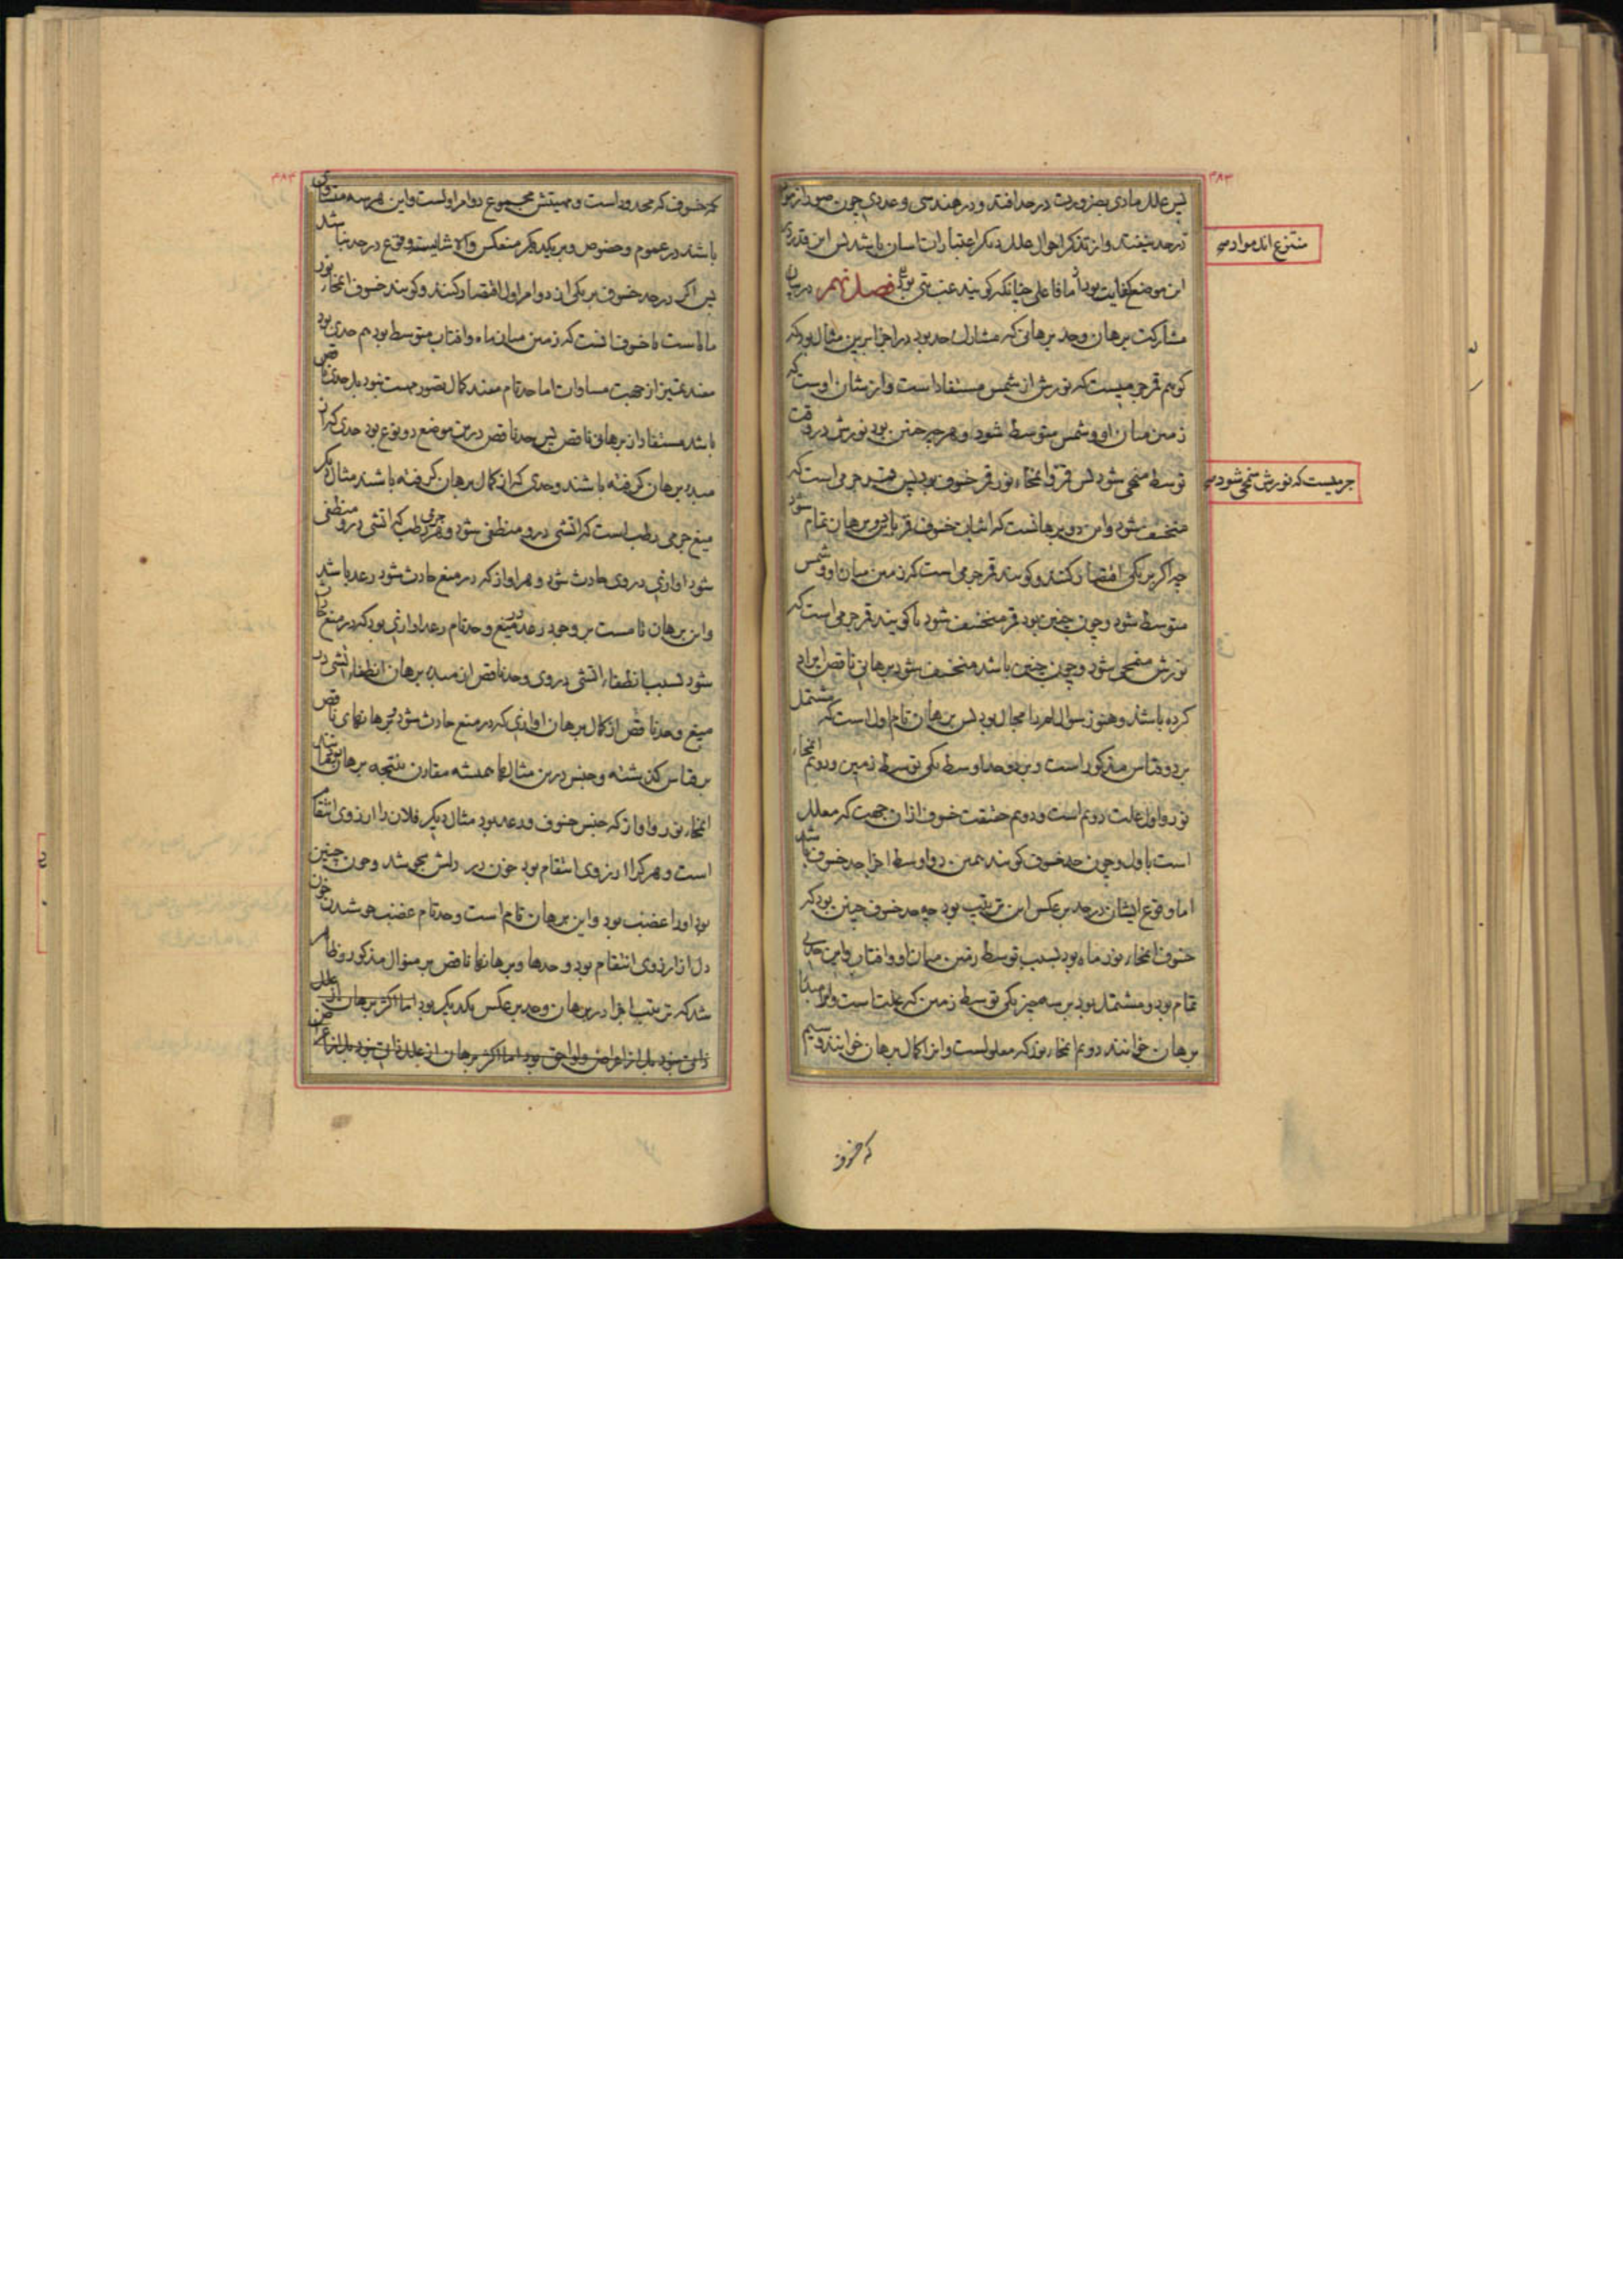 ۴۸۳
پس علل مادی بضرورت در حد افتد و در هندسی و عددی چون صور از مواد
منتزع اند مواد صح
در حد نیفتد و از تذکر احوال علل دیگر اعتبارات آسان باشد پس این قدر در
این موضع کفایت بود اما فاعلی چنانکه گویند فصل نهم در بیان
مشارکت برهان و حد برهانی که مشارک حد بود در اجزا برین مثال بود که
گوییم قمر جرمیست که نورش از شمس مستفاد است و از شان اوست که
زمین میان او و شمس متوسط شود و هر چه چنین بود نورش در وقت
توسط منمحی شود پس قمر را انمحاء نور قمر خسوف بود پس قمر جرمی است که
جرمیست که نورش منمحی شود صح
منخسف شود و این دو برهانست که اثبات خسوف قمر باین دو برهان تمام شود
چه اگر بر یکی اقتصار کنند و گویند قمر جرمی است که زمین میان او و شمس
متوسط شود و چون چنین بود قمر منخسف شود یا گویند قمر جرمی است که
نورش منمحی شود و چون چنین باشد منخسف شود برهانی ناقص ایراد
کرده باشند و هنوز سوال لم را مجال بود پس برهان تام اول است که مشتمل
بر دو قیاس مذکور است و بر دو حد اوسط یکی توسط زمین و دوم انمحاء
نور و اول علت دوم است و دوم حقیقت خسوف از آن جهت که معلل
است باول و چون حد خسوف گویند همین دو اوسط اجزا حد خسوف باشد
اما وقوع ایشان در حد بر عکس این ترتیب بود چه حد خسوف چنین بود که
خسوف انمحاء نور ماه بود بسبب توسط زمین میان او و آفتاب و این حدی
تمام بود و مشتمل بود بر سه چیز یکی توسط زمین که علت است و آنرا مبدأ
برهان خوانند دوم انمحاء نور که معلولست و آنرا کمال برهان خوانند و سیم
که خسوف
۴۸۴
که خسوف که محدود است و مهیتش مجموع دو امر اولست و این هر سه متساوی
باشند در عموم و خصوص و بر یکدیگر منعکس و الا شایسته وقوع در حد نباشد
پس اگر در حد خسوف بر یکی از دو امر اول اقتصار کنند و گویند خسوف انمحاء نور
ماه است یا خسوف آنست که زمین میان ماه و آفتاب متوسط بود هم حدی بود
مفید تمیز از جهت مساوات اما حد تام مفید کمال تصور مهیت نبود بل حدی ناقص
باشد مستفاد از برهانی ناقص پس حد ناقص درین موضع دو نوع بود حدی که از
مبدء برهان گرفته باشند و حدی که از کمال برهان گرفته باشند مثال دیگر
میغ جرمی رطب است که آتشی در و منطفی شود و هر جرمی رطب که آتشی در و منطفی
شود آوازی در وی حادث شود و هر آواز که در میغ حادث شود رعد باشد
و این برهان تامست بر وجود رعد در میغ و حد تام رعد آوازی بود که در میغ حادث
شود بسبب انطفاء آتشی در وی و حد ناقص از مبدء برهان انطفاء آتشی در
میغ و حد ناقص از کمال برهان آوازی که در میغ حادث شود و برهانهای ناقص
بر قیاس گذشته و جنس درین مثالها همیشه مقارن نتیجه برهان باشد
انمحاء نور و آواز که جنس خسوف و رعد بود مثال دیگر فلان را آرزوی انتقام
است و هر کرا آرزوی انتقام بود خون در دلش بجوشد و چون چنین
بود او را غضب بود و این برهان تام است و حد تام غضب جوشیدن خون
دل از آرزوی انتقام بود و حدها و برهانها ناقص بر منوال مذکور و ظاهر
شد که ترتیب اجزا در برهان و حد بر عکس یکدیگر بود اما اکثر برهان از علل
ذاتی نبود بل از اعراض و لواحق بود اما اکثر برهان از علل ذاتی نبود بل از اعراض